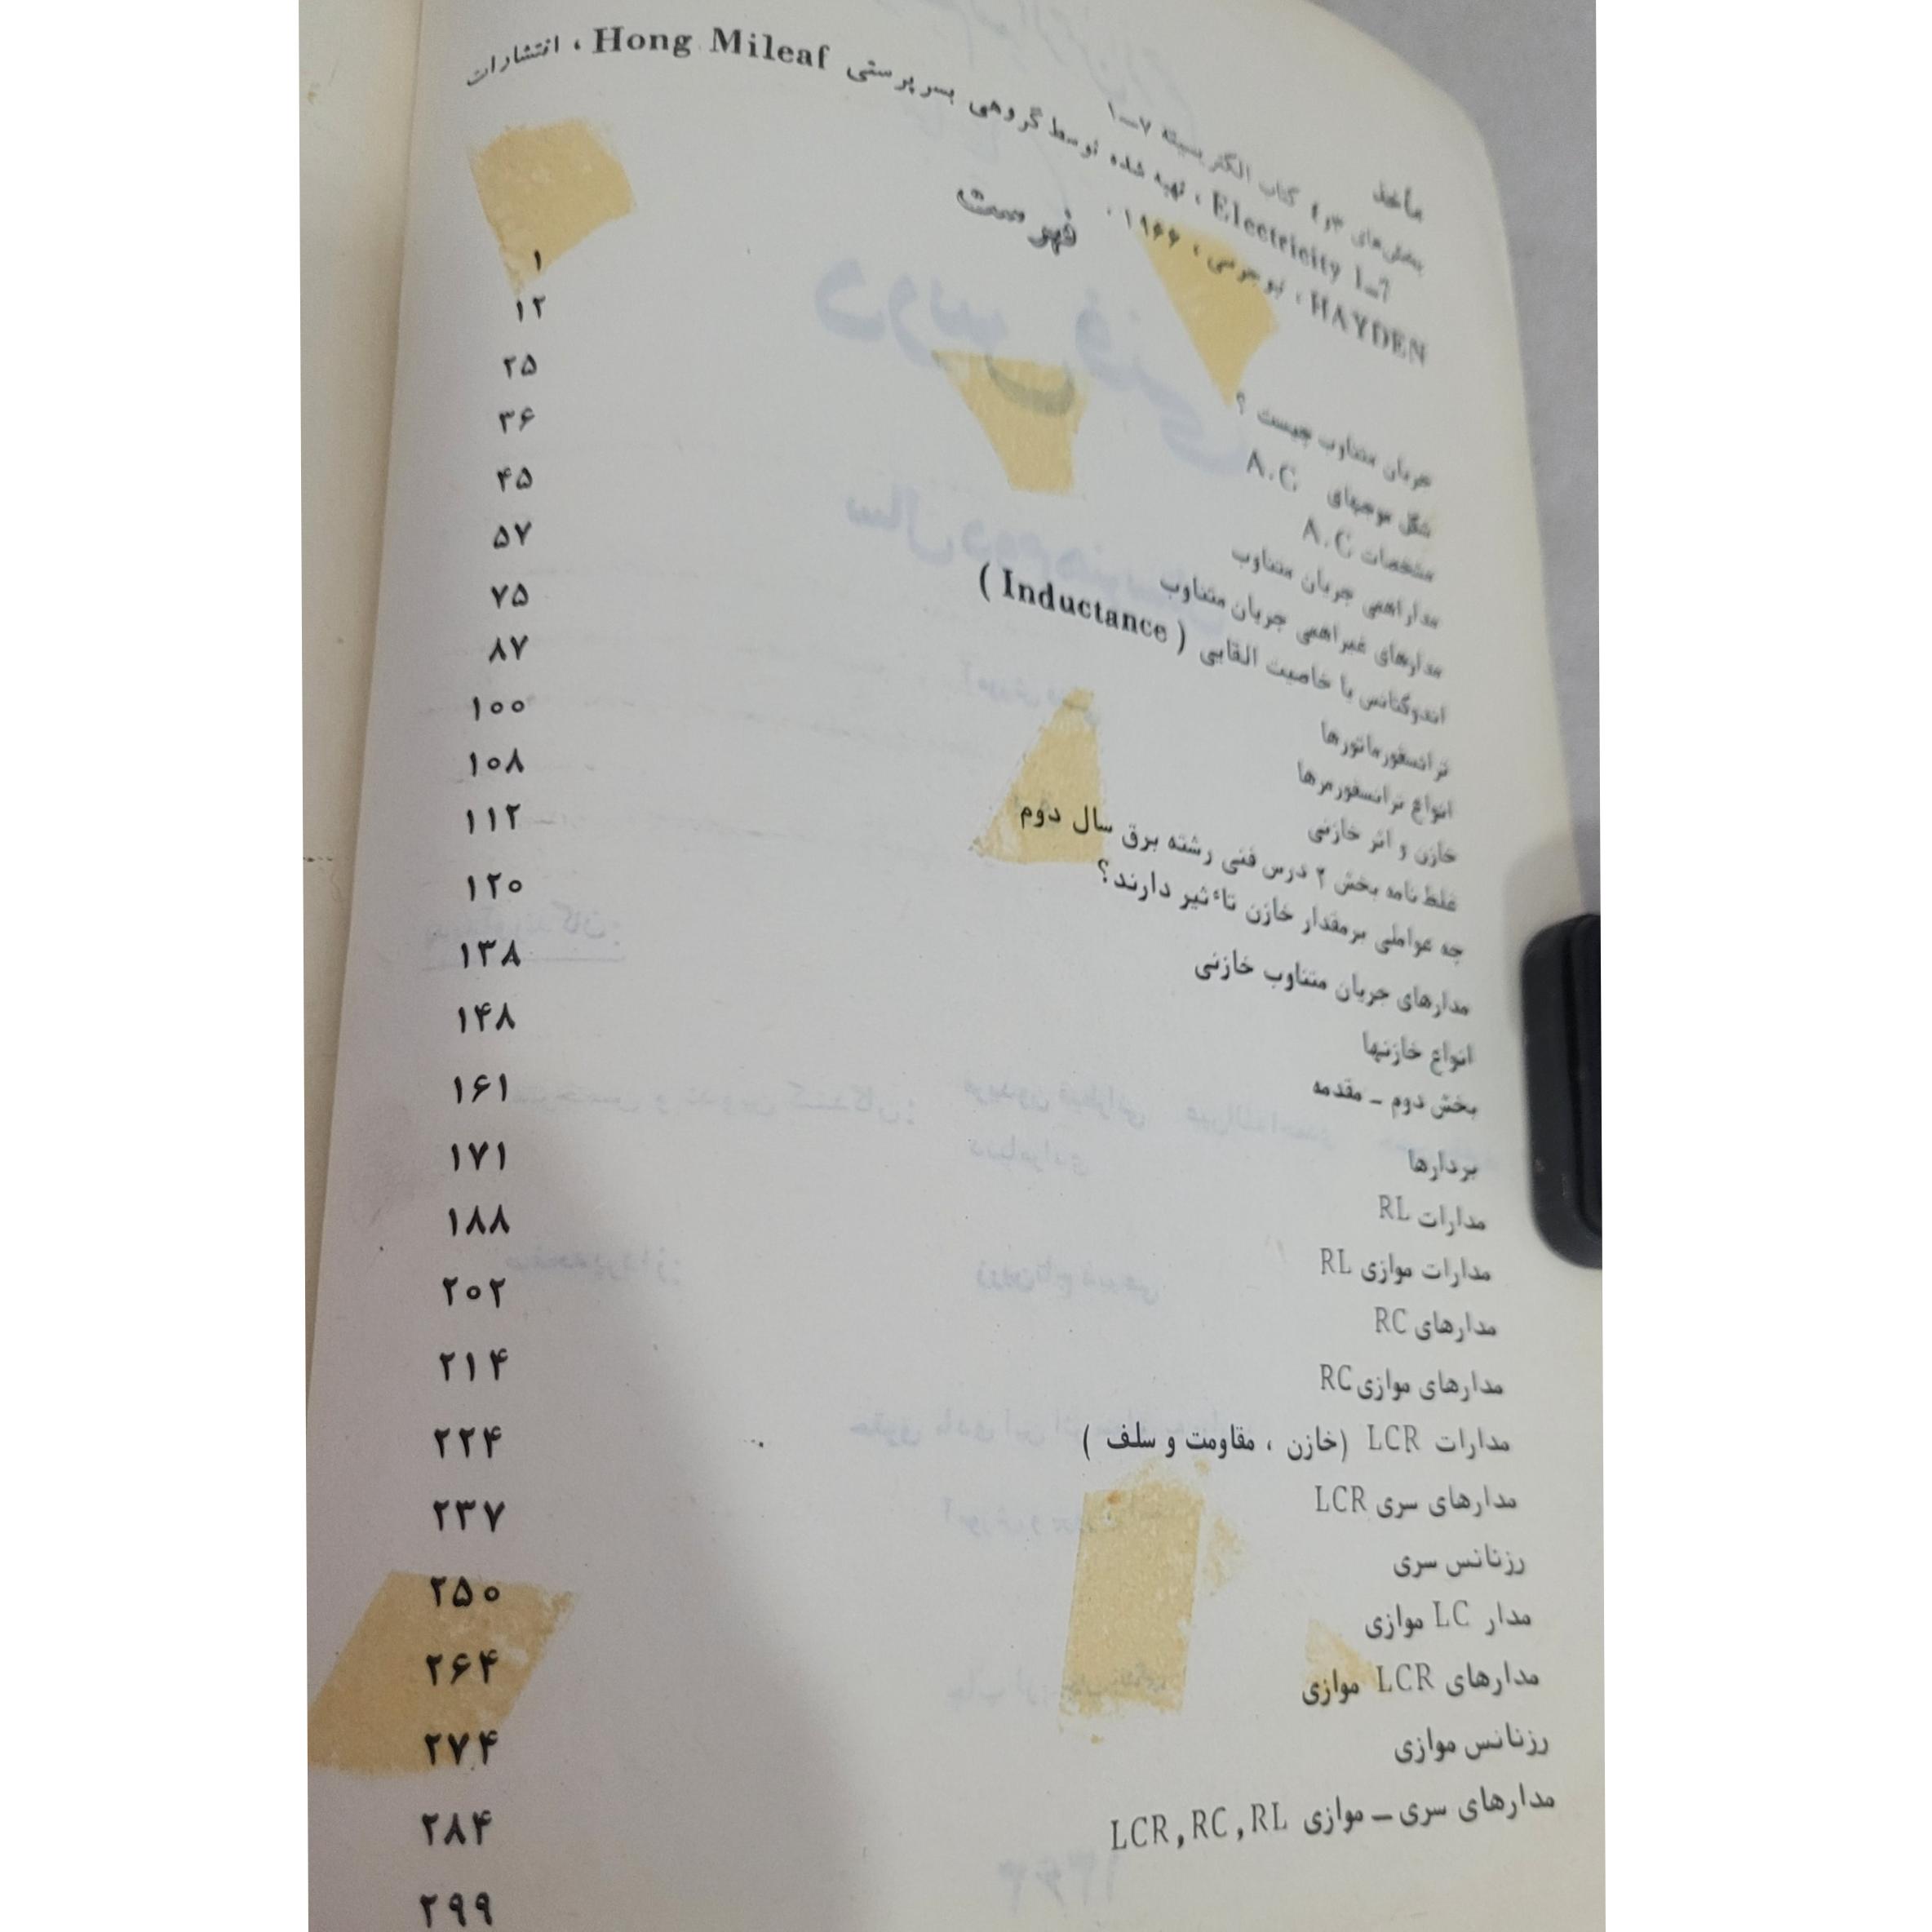 مأخذ
بخش‌های ۳و۴ کتاب الکتریسیته ۷ــ۱
Electricity 1ــ7 ، تهیه شده توسط گروهی بسرپرستی Hong Mileaf ، انتشارات
HAYDEN ، نیوجرسی ، ۱۹۶۶ .
فهرست
جریان متناوب چیست ؟ ۱
شکل موجهای A.C. ۱۲
مشخصات A.C ۲۵
مداراهمی جریان متناوب ۳۶
مدارهای غیراهمی جریان متناوب ۴۵
اندوکتانس یا خاصیت القایی ( Inductance ) ۵۷
ترانسفورماتورها ۷۵
انواع ترانسفورمرها ۸۷
خازن و اثر خازنی ۱۰۰
غلط نامه بخش ۲ درس فنی رشته برق سال دوم ۱۰۸
چه عواملی برمقدار خازن تاءثیر دارند؟ ۱۱۲
مدارهای جریان متناوب خازنی ۱۲۰
انواع خازنها ۱۳۸
بخش دوم ــ مقدمه ۱۴۸
بردارها ۱۶۱
مدارات RL ۱۷۱
مدارات موازی RL ۱۸۸
مدارهای RC ۲۰۲
مدارهای موازی RC ۲۱۴
مدارات LCR (خازن ، مقاومت و سلف ) ۲۲۴
مدارهای سری LCR ۲۳۷
رزنانس سری ۲۵۰
مدار LC موازی ۲۶۴
مدارهای LCR موازی ۲۷۴
رزنانس موازی ۲۸۴
مدارهای سری ــ موازی LCR,RC,RL ۲۹۹